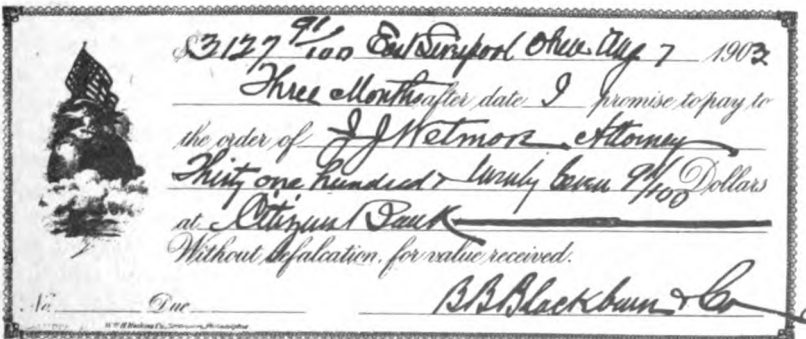 $3127 91/100 East Liverpool Ohio Aug 7 1903
Three Months after date I promise to pay to
the order of J J Wetmore Attorney
Thirty one hundred & twenty seven 91/100 Dollars
at Citizens Bank
Without defalcation, for value received.
No. Due B B Blackburn & Co